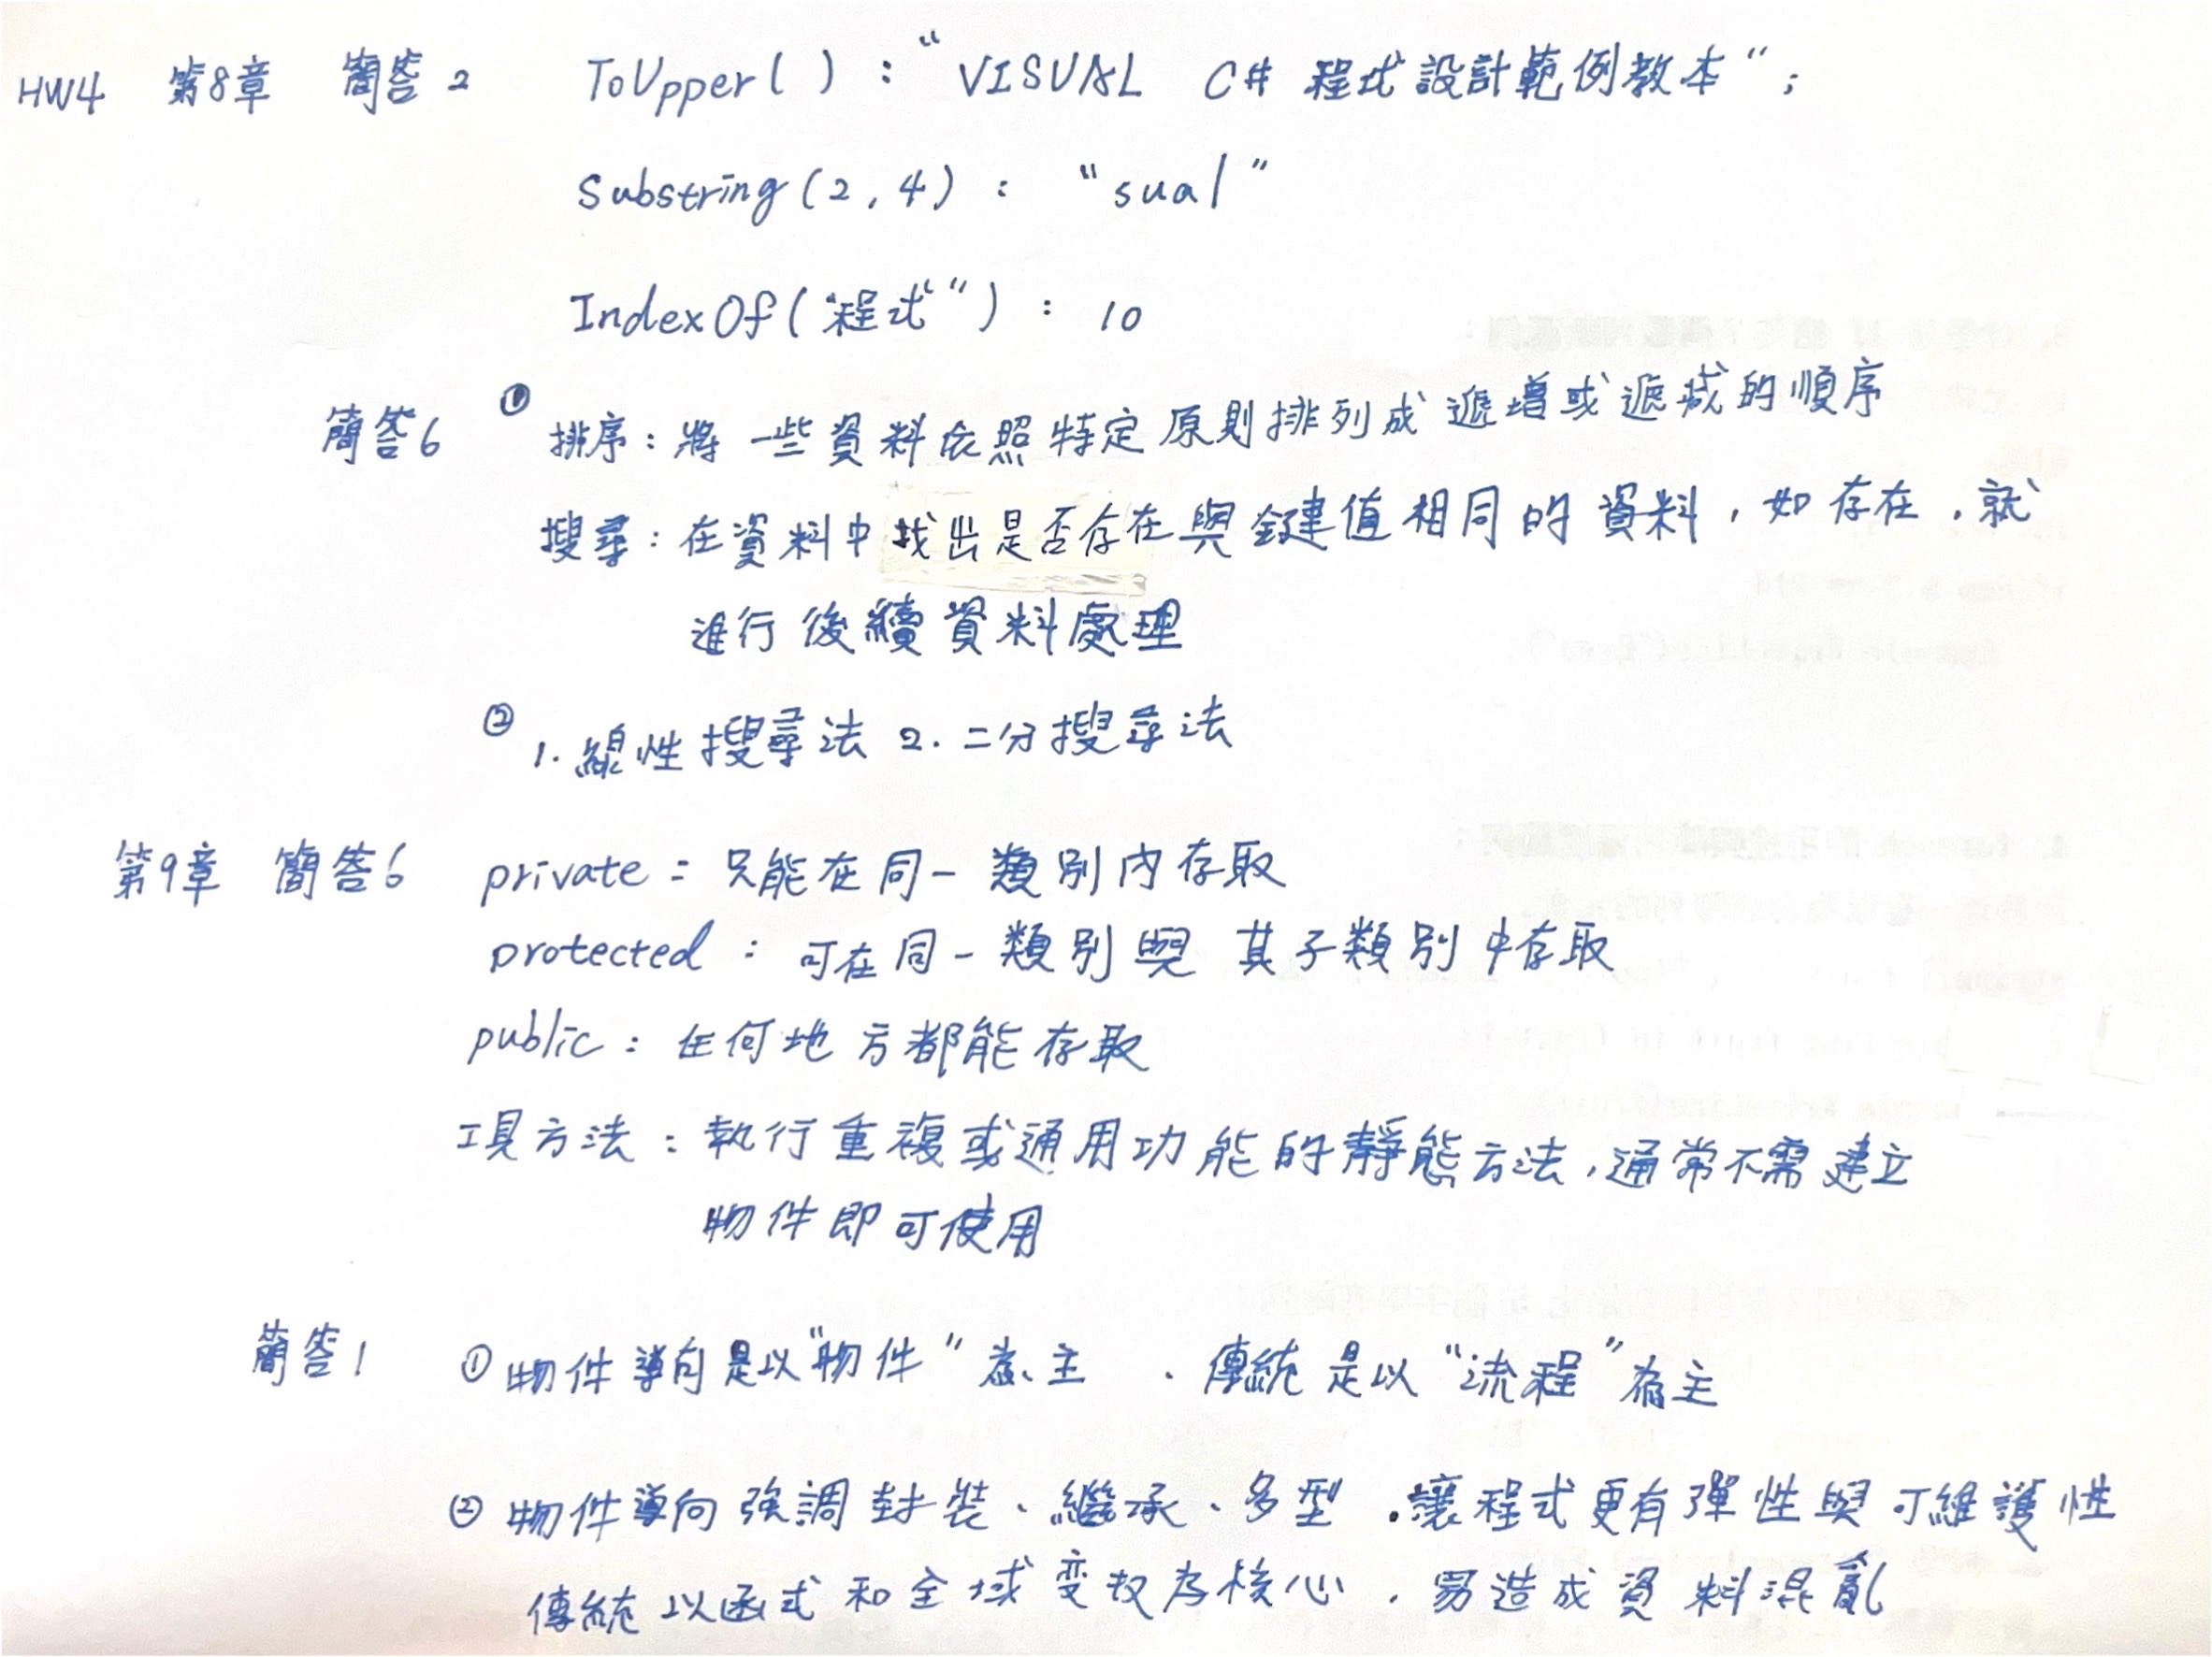 HW4 第8章 簡答2 ToUpper( ) : “VISUAL C# 程式設計範例教本“;
Substring(2,4) : “sual”
IndexOf(“程式“) : 10
簡答6 ① 排序:將一些資料依照特定原則排列成遞增或遞減的順序
搜尋:在資料中找出是否存在與鍵值相同的資料,如存在,就
進行後續資料處理
② 1.線性搜尋法 2.二分搜尋法
第9章 簡答6 private:只能在同一類別內存取
protected:可在同一類別與其子類別中存取
public:任何地方都能存取
工具方法:執行重複或通用功能的靜態方法,通常不需建立
物件即可使用
簡答1 ①物件導向是以“物件”為主、傳統是以“流程”為主
②物件導向強調封裝、繼承、多型,讓程式更有彈性與可維護性
傳統以函式和全域变数为核心,易造成資料混亂